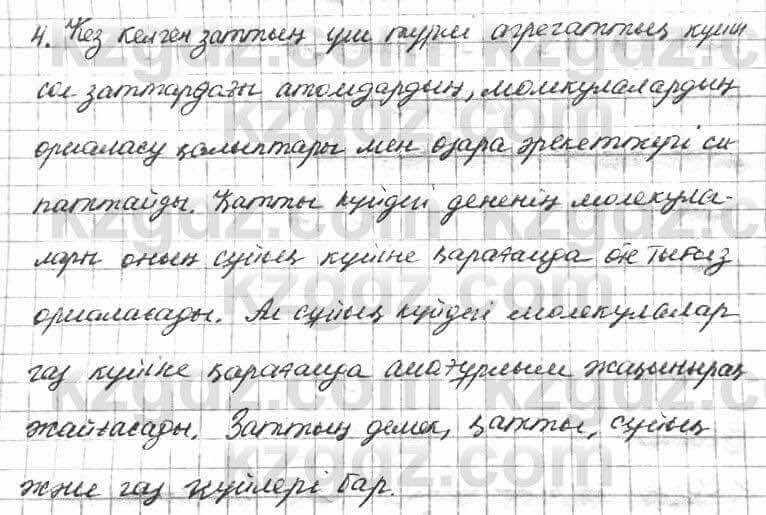 4. Кез келген заттың үш түрлі агрегаттық күйін
сол заттардағы атомдардың, молекулалардың
орналасу қалыптары мен өзара әрекеттері си
паттайды. Қатты күйдегі дененің молекула-
лары оның сұйық күйіне қарағанда өте тығыз
орналасады. Ал сұйық күйдегі молекулалар
газ күйіне қарағанда анағұрлым жақынырақ
жайғасады. Заттың демек, қатты, сұйық
және газ күйлері бар.
kzgdz.com